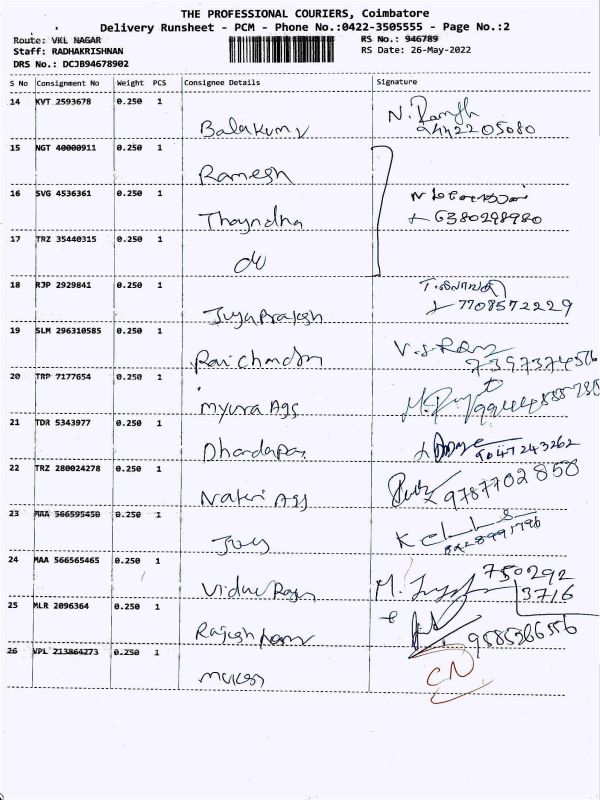 THE PROFESSIONAL COURIERS, Coimbatore
Delivery Runsheet - PCM - Phone No.:0422-3505555 - Page No.:2
Route: VKL NAGAR RS No.: 946789
Staff: RADHAKRISHNAN RS Date: 26-May-2022
DRS No.: DCJB94678902
S No Consignment No Weight PCS Consignee Details Signature
14 KVT 2593678 0.250 1
Balakumv 9442205080
15 NGT 40000911 0.250 1
Ramesh
16 SVG 4536361 0.250 1
Thayndha 6380298980
17 TRZ 35440315 0.250 1
do
18 RJP 2929841 0.250 1
JuyaPrakash 7708572229
19 SLM 296310585 0.250 1
Ravichandn V.S. Ramz
20 TRP 7177654 0.250 1
Myura Ags
21 TDR 5343977 0.250 1
Dhandapas 9047243262
22 TRZ 280024278 0.250 1
Nateri Ags 9787702850
23 MAA 566595450 0.250 1
24 MAA 566565465 0.250 1
750292
3716
25 MLR 2096364 0.250 1
Rajesh 9585266556
26 VPL 213864273 0.250 1
Mukesh CN